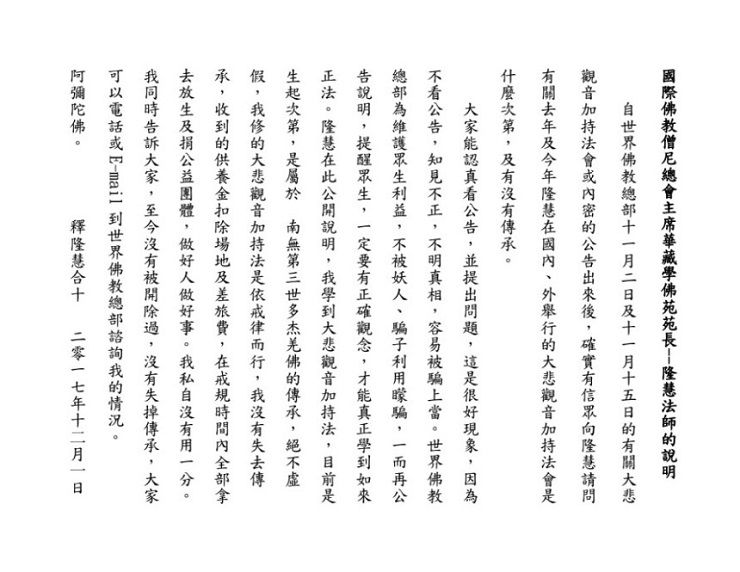 國際佛教僧尼總會主席華藏學佛苑苑長–隆慧法師的說明
自世界佛教總部十一月二日及十一月十五日的有關大悲
觀音加持法會或內密的公告出來後，確實有信眾向隆慧請問
有關去年及今年隆慧在國內、外舉行的大悲觀音加持法會是
什麼次第，及有沒有傳承。
大家能認真看公告，並提出問題，這是很好現象，因為
不看公告，知見不正，不明真相，容易被騙上當。世界佛教
總部為維護眾生利益，不被妖人、騙子利用矇騙，一而再公
告說明，提醒眾生，一定要有正確觀念，才能真正學到如來
正法。隆慧在此公開說明，我學到大悲觀音加持法，目前是
生起次第，是屬於 南無第三世多杰羌佛的傳承，絕不虛
假，我修的大悲觀音加持法是依戒律而行，我沒有失去傳
承，收到的供養金扣除場地及差旅費，在戒規時間內全部拿
去放生及捐公益團體，做好人做好事。我私自沒有用一分。
我同時告訴大家，至今沒有被開除過，沒有失掉傳承，大家
可以電話或 E-mail 到世界佛教總部諮詢我的情況。
阿彌陀佛。 釋隆慧合十 二零一七年十二月一日